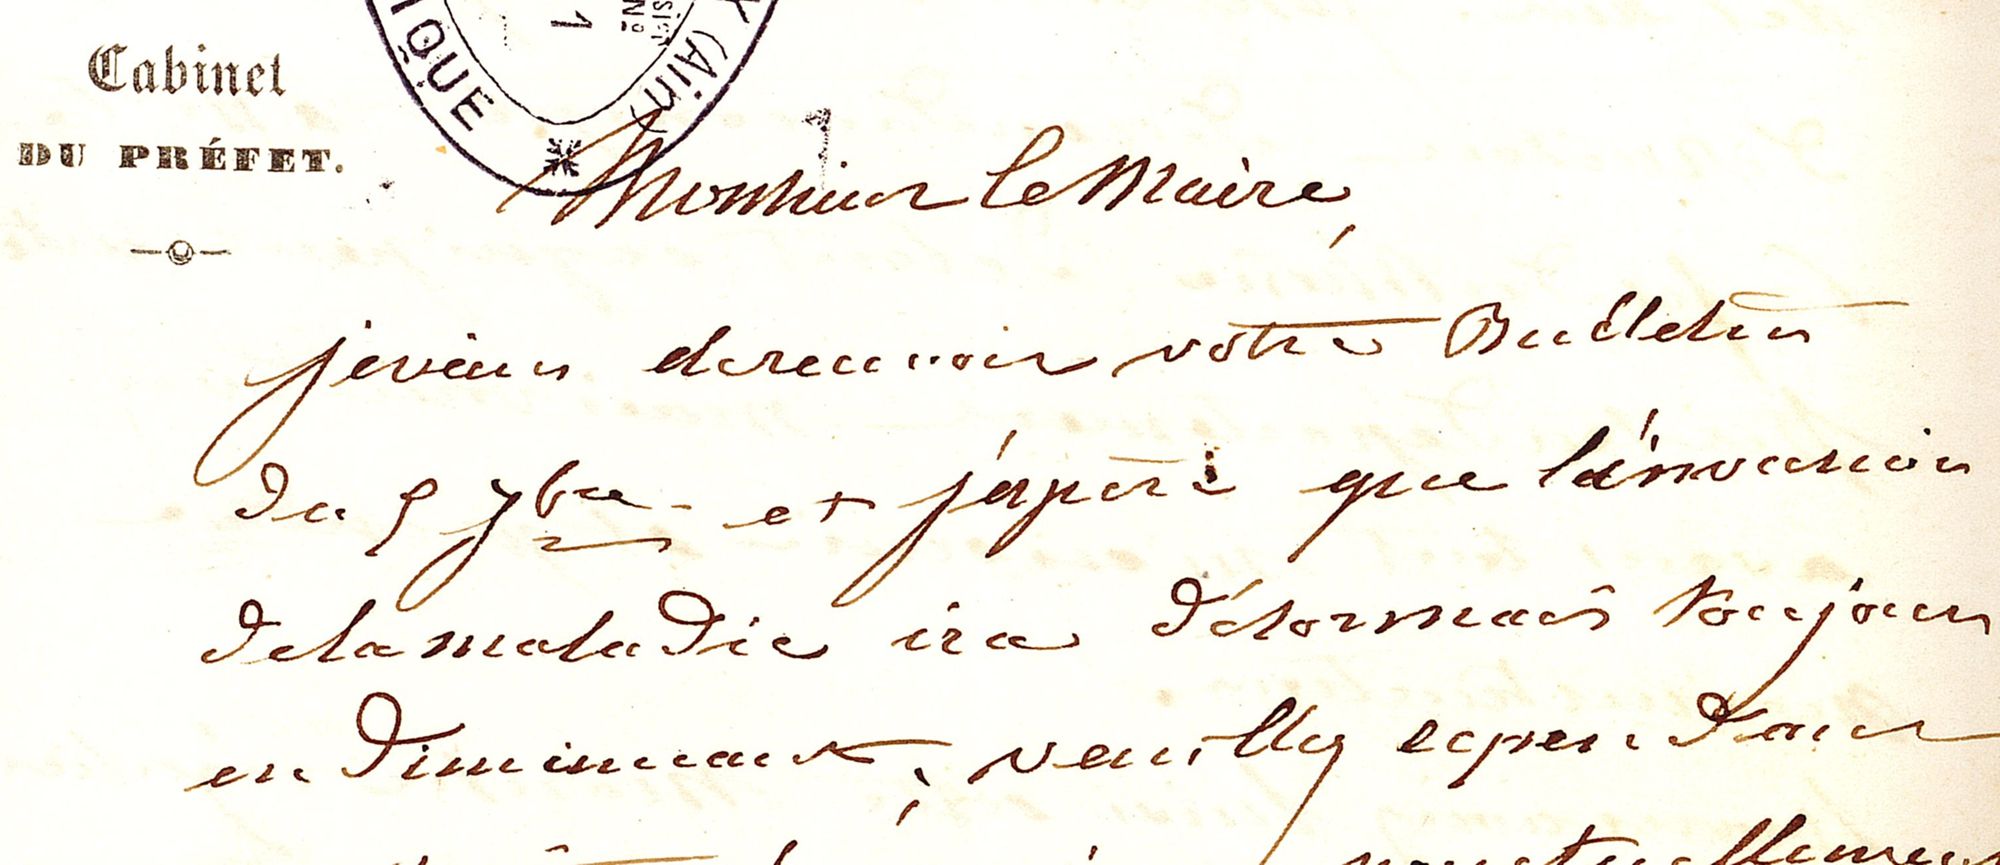 IQUE
Y (Ain)
1
Cabinet
DU PRÉFET.
Monsieur le Maire,
je viens de recevoir votre Bulletin
du 5 7bre et j'espère que l'invasion
de la maladie ira désormais toujours
en diminuant; veuillez cependant